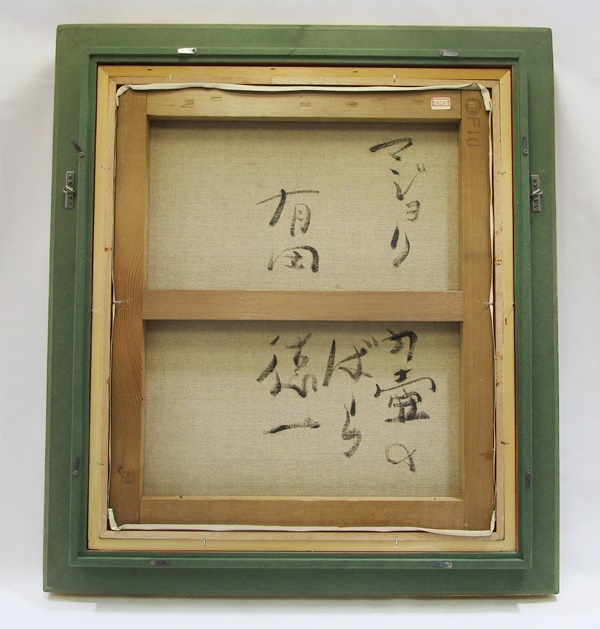 マジョリカ壺の
ばら
有田 徳一
F10